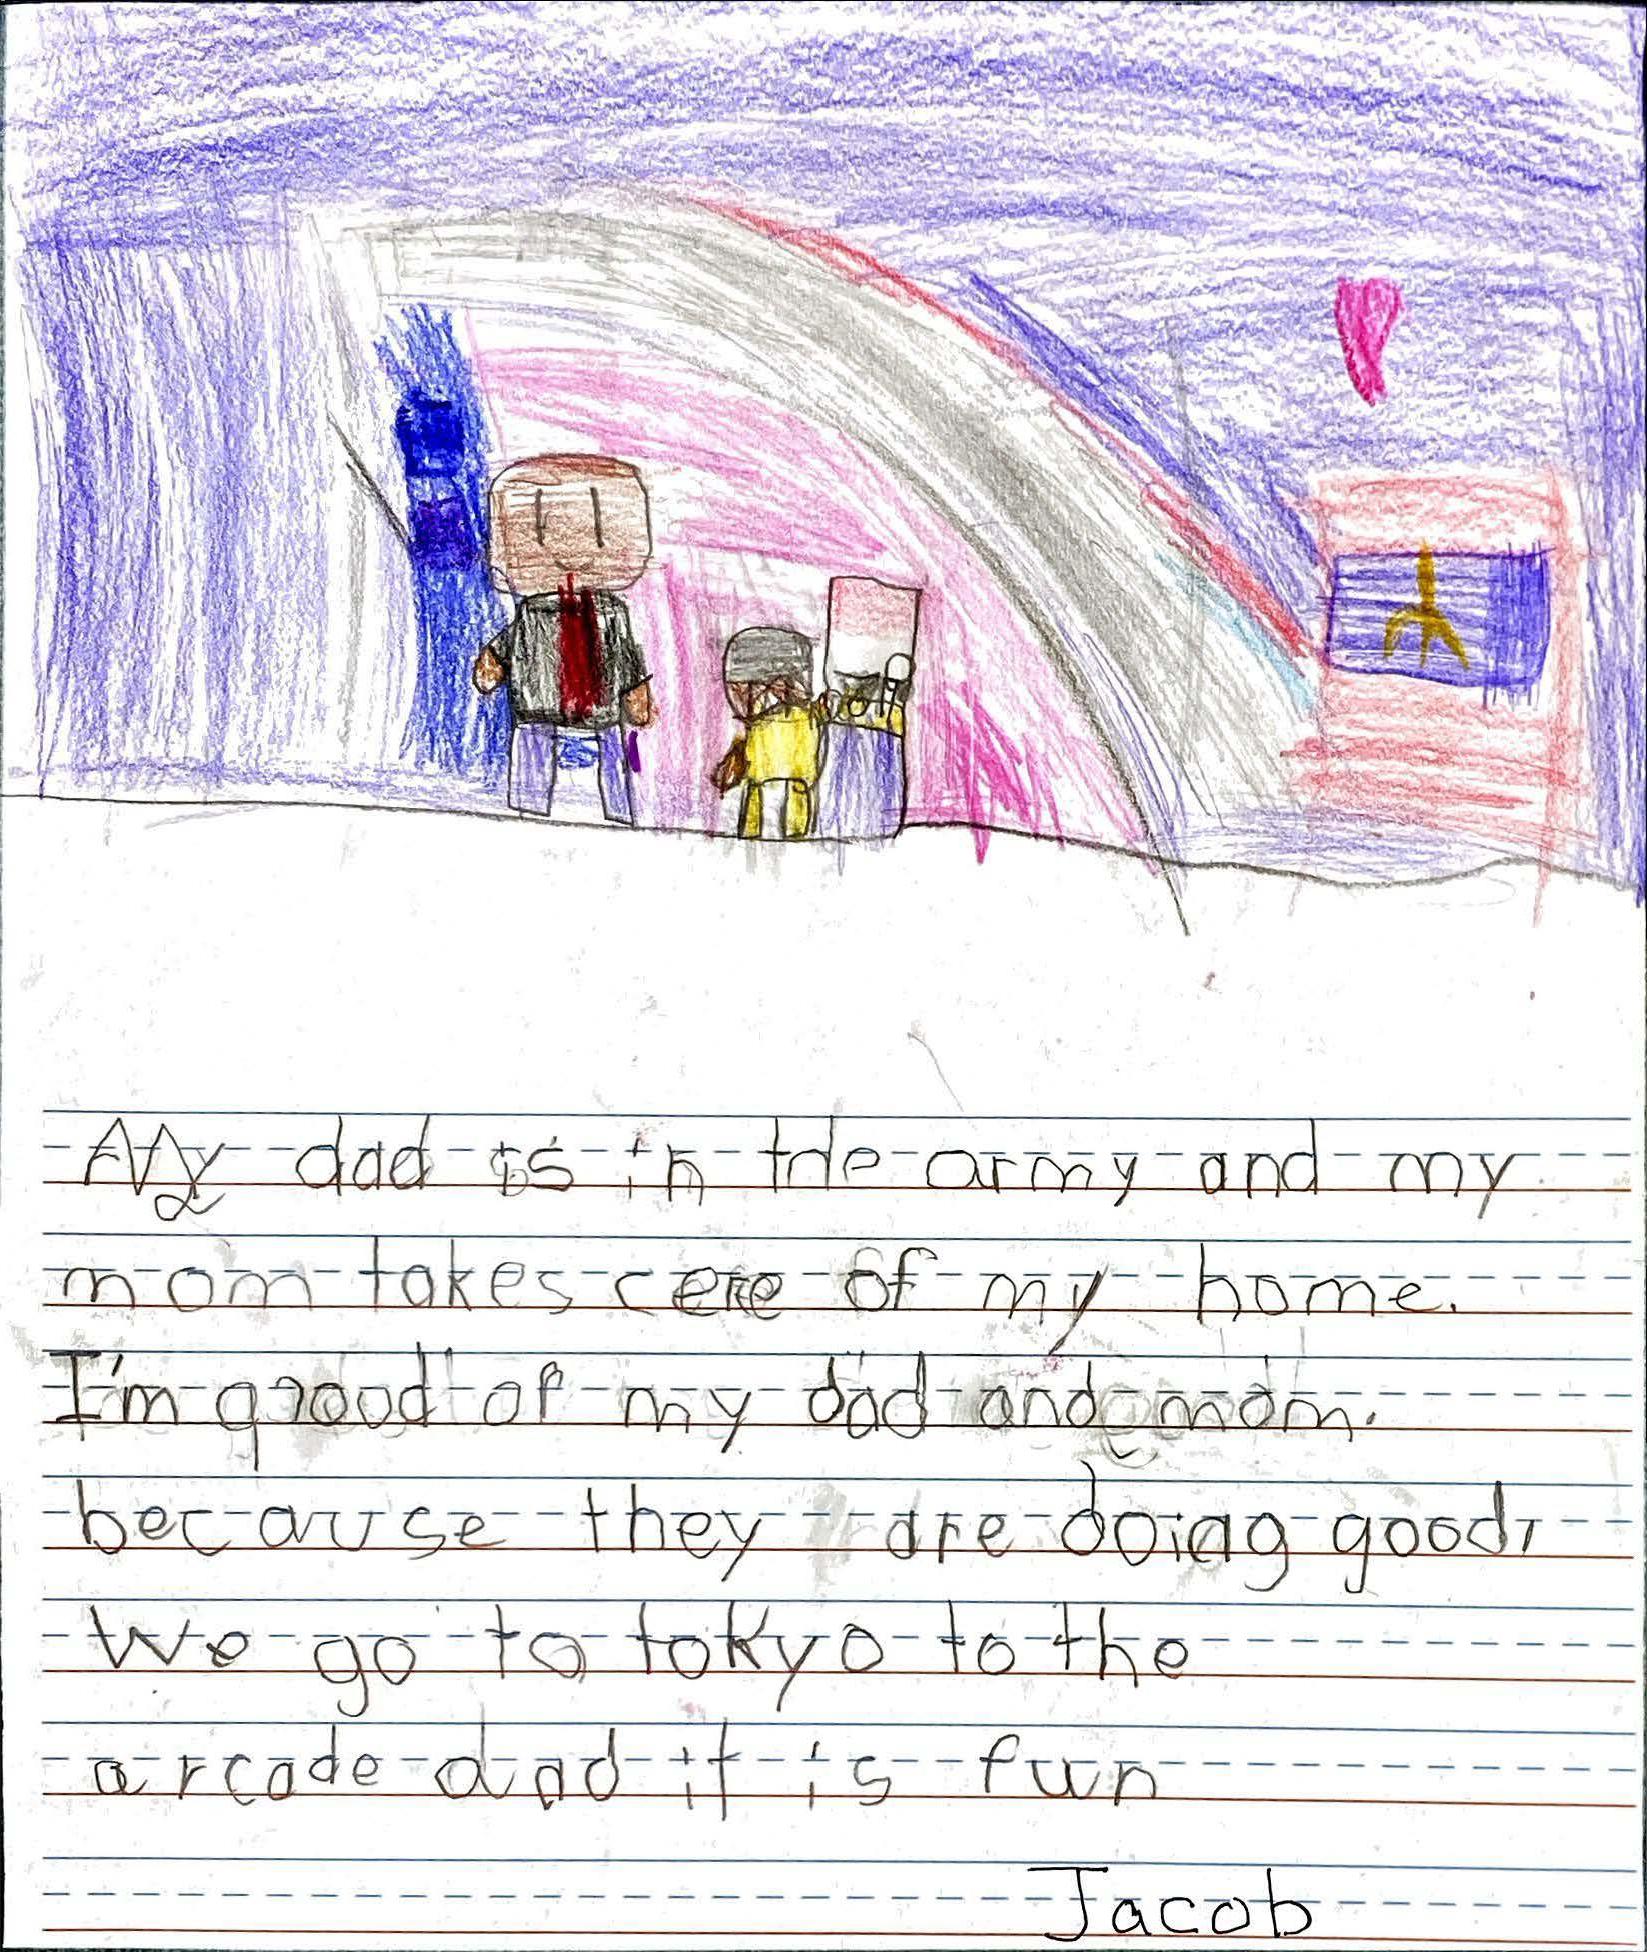 My dad is in the army and my
mom takes cere of my home.
I'm qrood of my dad and mom.
because they are doing good,
We go to tokyo to the
arcade dnd it is fun
Jacob